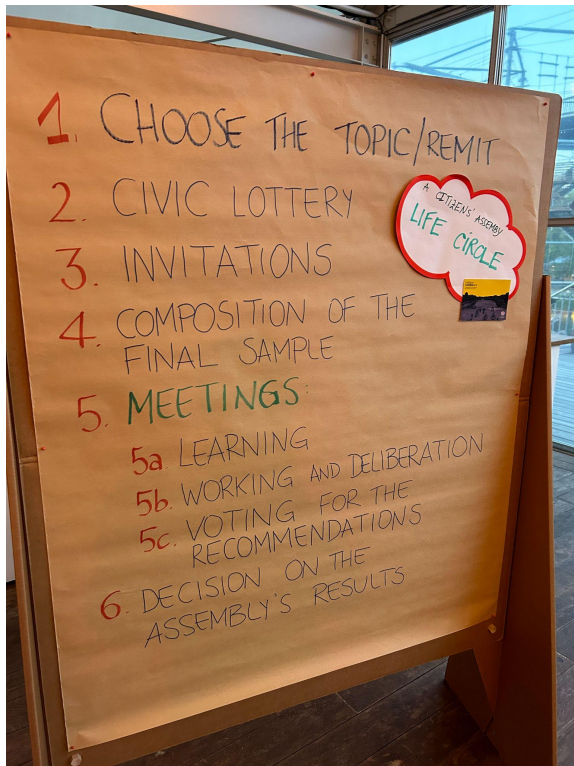 1. CHOOSE THE TOPIC/REMIT
2. CIVIC LOTTERY
3. INVITATIONS
4. COMPOSITION OF THE
FINAL SAMPLE
5. MEETINGS:
5a. LEARNING
5b. WORKING AND DELIBERATION
5c. VOTING FOR THE
RECOMMENDATIONS
6. DECISION ON THE
ASSEMBLY'S RESULTS
A CITIZENS' ASSEMBLY
LIFE CIRCLE